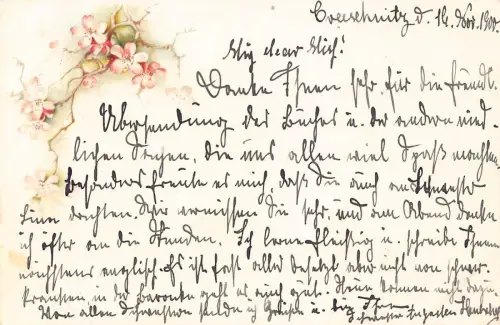 d. 14. Nov. 1900.
My dear Miss!
Danke Ihnen sehr für die freundl.
Übersendung des Buches u. der andern nied-
lichen Sachen, die uns allen viel Spaß machten.
Besonders freute es mich, daß Sie auch an Schwester
dachten. Wir vermissen Sie sehr, und am Abend denke
ich öfter an die Stunden. Ich lerne fleißig u. schreibe Ihnen
nächstens englisch. Es ist fast alles besetzt aber nicht von schwer-
kranken, in der Baracke geht es auch gut.
Von allen Schwestern sende ich Grüße u. bin Ihre
Schwester